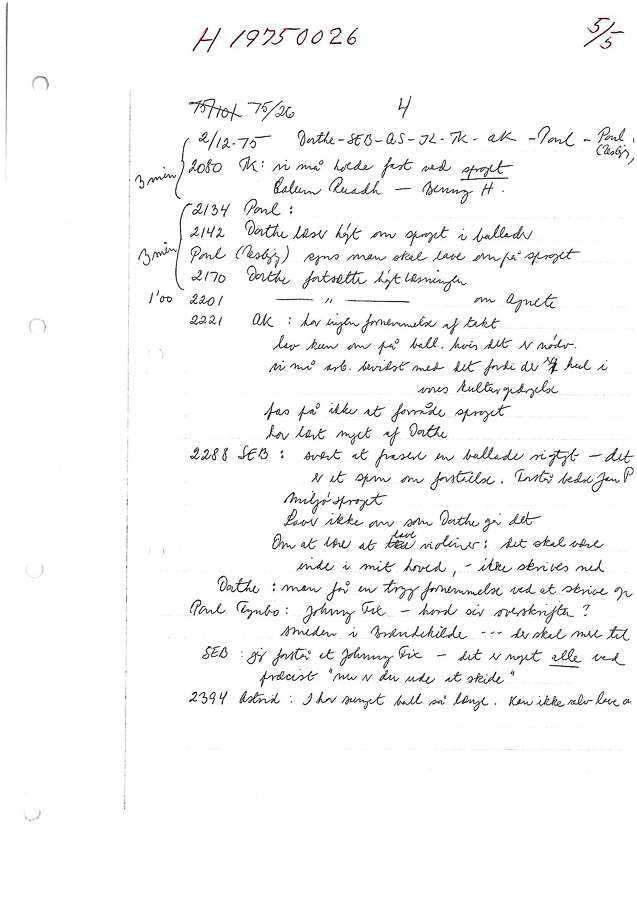 H 19750026
5/5
75/101 75/26
4
2/12-75 Dorthe-SEB-AS-JL-TK-AK-Poul-Poul
3 min
2080 TK: vi må holde fast ved sproget
— Benny H.
2134 Poul:
2142 Dorthe læser højt om sproget i ballader
3 min
Poul synes man skal lave om på sproget
2170 Dorthe fortsætter højtlæsningen
1'00 2201 —— " —— om Agnete
2221 AK: har ingen fornemmelse af takt
lav kun om på ball. hvis det er nødv.
vi må arb. bevidst med det fordi der er hul i
vores
pas på ikke at forråde sproget
har lært meget af Dorthe
2288 SEB: svært at frasere en ballade rigtigt - det
er et spm om forståelse. Forstår bedre Jan P
miljøsproget
Laver ikke om som Dorthe gør det
Om at lære at lave violiner: det skal være
inde i mit hoved, - ikke skrives ned
Dorthe: man får en tryg fornemmelse ved at skrive op
Poul: Johnny Fix - hvad siger overskriften?
smeden i Brændekilde --- der skal mere til
SEB: jeg forstår et Johnny Fix - det er noget alle ved
præcist "nu er du ude at skide"
2394 Astrid: I har sunget ball så længe. Kan ikke selv lave